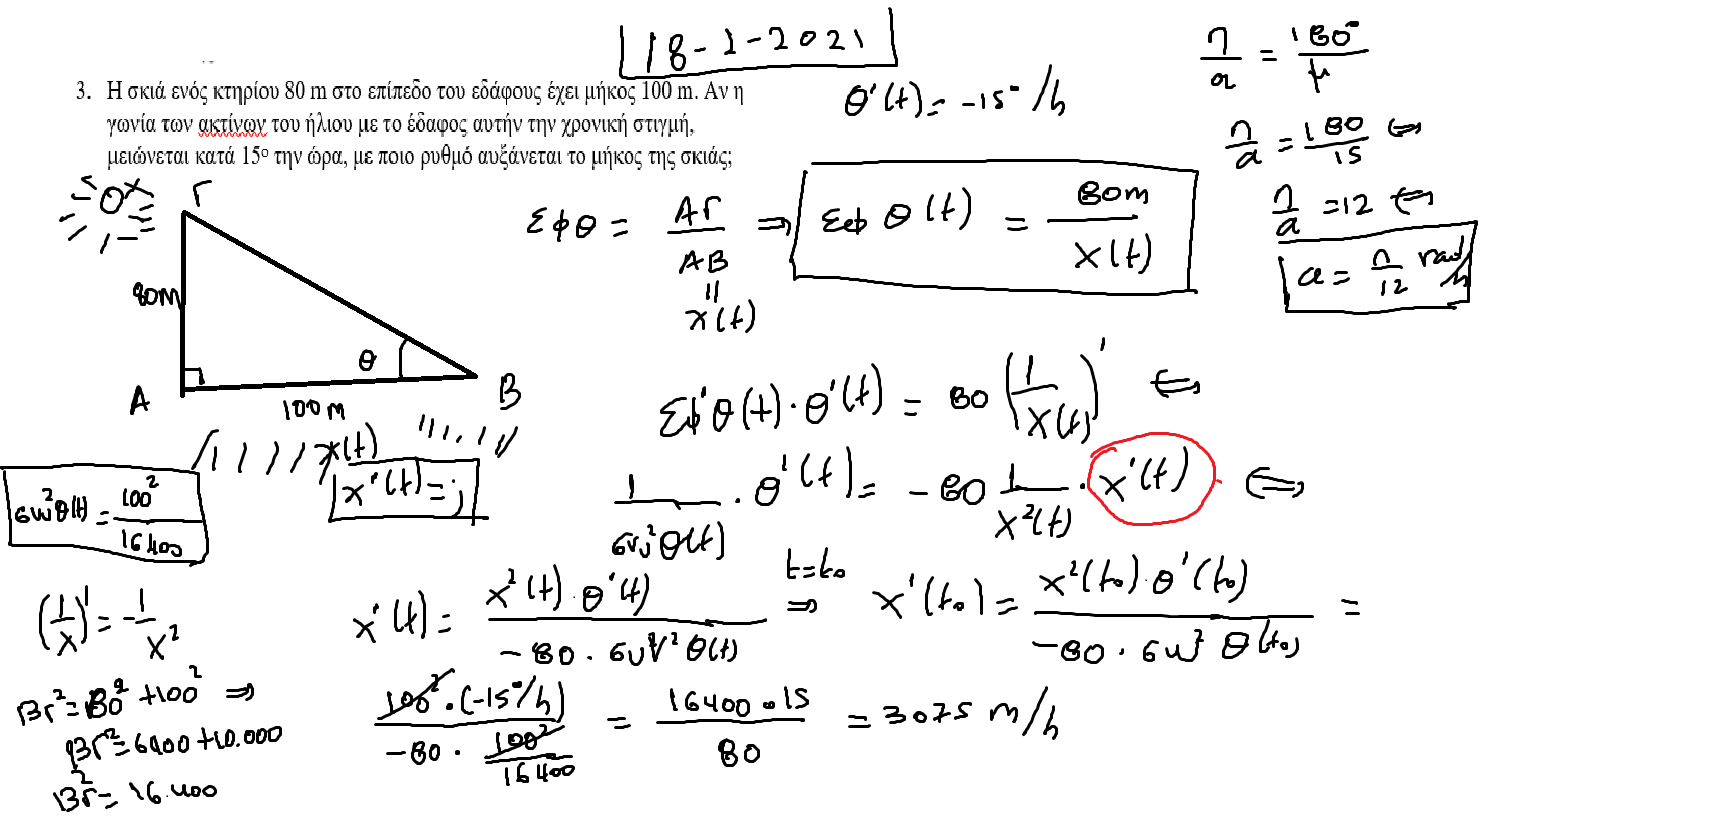 18-1-2021
3. Η σκιά ενός κτηρίου 80 m στο επίπεδο του εδάφους έχει μήκος 100 m. Αν η
γωνία των ακτίνων του ήλιου με το έδαφος αυτήν την χρονική στιγμή,
μειώνεται κατά 15º την ώρα, με ποιο ρυθμό αυξάνεται το μήκος της σκιάς;
θ'(t) = -15°/h
π/α = 180°/μ
π/α = 180/15 ⇔
π/α = 12 ⇔
α = π/12 rad/h
Γ
80m
A
θ
B
100m
x(t)
x'(t)=;
εφθ = ΑΓ/ΑΒ ⇒ εφ θ(t) = 80m/x(t)
=
x(t)
εφ'θ(t)·θ'(t) = 80 (1/x(t))' ⇔
1/συν²θ(t) · θ'(t) = -80 1/x²(t) · x'(t) ⇔
συν²θ(t) = 100²/16400
x'(t) = x²(t)·θ'(t)/-80·συν²θ(t) t=t₀ ⇒ x'(t₀) = x²(t₀)·θ'(t₀)/-80·συν²θ(t₀) =
(1/x)' = -1/x²
ΒΓ² = 80² + 100² ⇒
ΒΓ² = 6400 + 10.000
ΒΓ² = 16.400
100²·(-15°/h)/-80·100²/16400 = 16400·15/80 = 3075 m/h